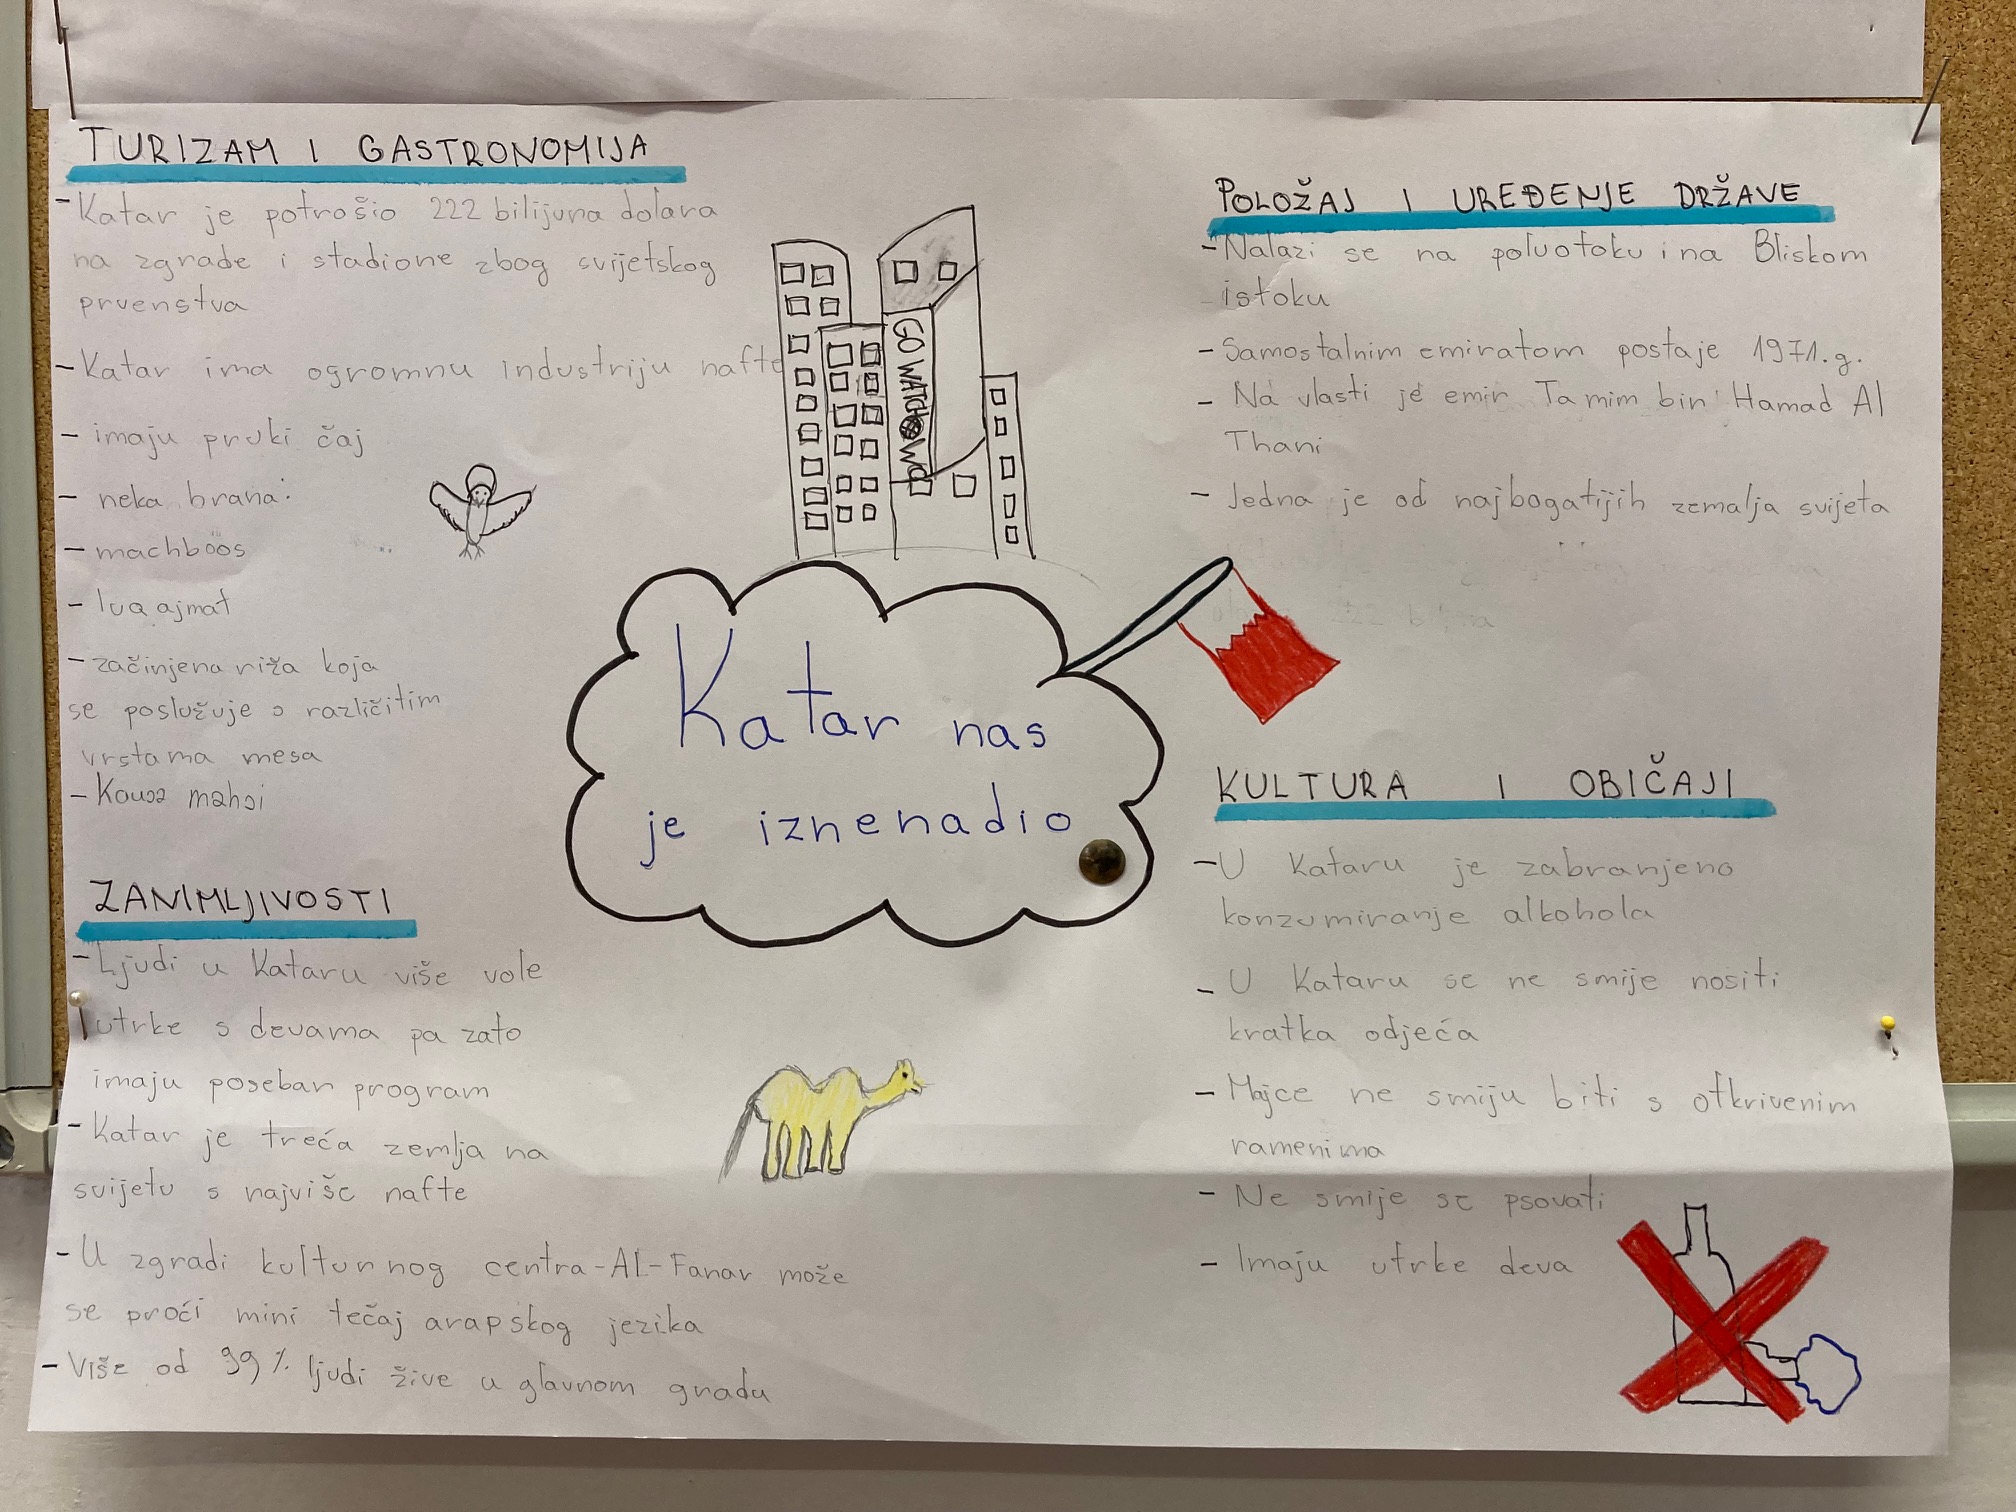 TURIZAM I GASTRONOMIJA
- Katar je potrošio 222 bilijuna dolara
na zgrade i stadione zbog svijetskog
prvenstva
- Katar ima ogromnu industriju nafte
- imaju pruki čaj
- neka brana:
- machböös
- luqajmat
- začinjena riža koja
se poslužuje s različitim
vrstama mesa
- Kousa mahsi
ZANIMLJIVOSTI
- Ljudi u Kataru više vole
utrke s devama pa zato
imaju poseban program
- Katar je treća zemlja na
svijetu s najviše nafte
- U zgradi kulturnog centra-Al-Fanar može
se proći mini tečaj arapskog jezika
- Više od 99% ljudi žive u glavnom gradu
GO WATCH WC
Katar nas
je iznenadio
POLOŽAJ I UREĐENJE DRŽAVE
- Nalazi se na poluotoku i na Bliskom
istoku
- Samostalnim emiratom postaje 1971.g.
- Na vlasti je emir Tamim bin Hamad Al
Thani
- Jedna je od najbogatijih zemalja svijeta
KULTURA I OBIČAJI
- U Kataru je zabranjeno
konzumiranje alkohola
- U Kataru se ne smije nositi
kratka odjeća
- Majce ne smiju biti s otkrivenim
ramenima
- Ne smije se psovati
- Imaju utrke deva